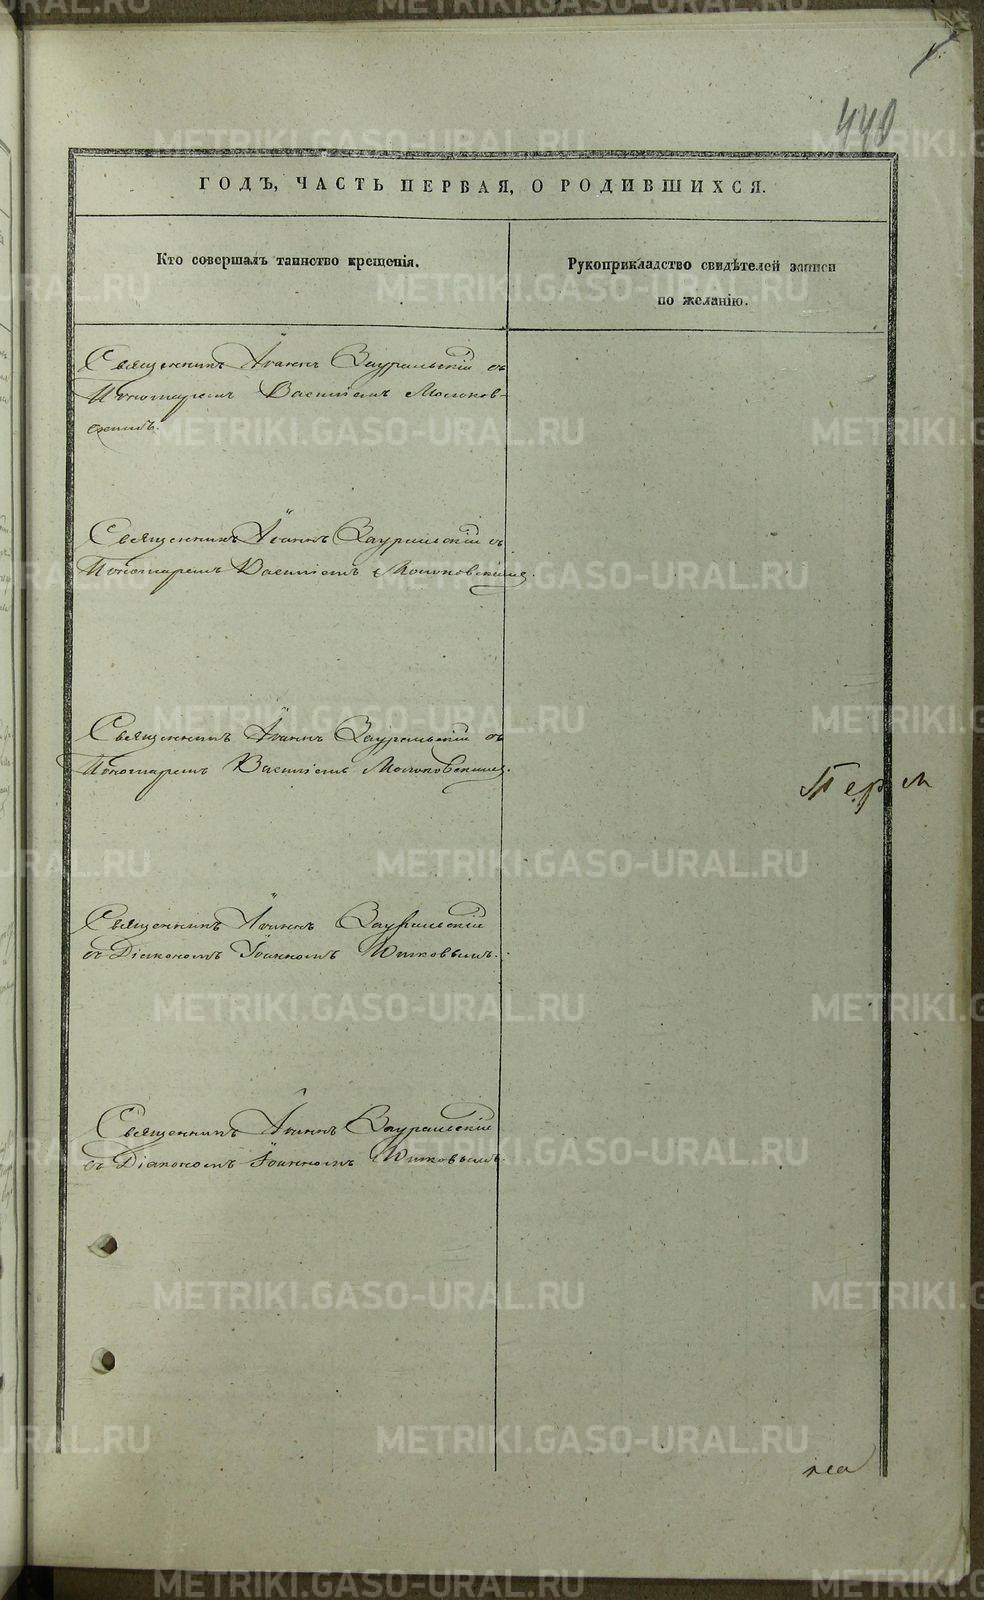 440
ГОДЪ, ЧАСТЬ ПЕРВАЯ, О РОДИВШИХСЯ.
Кто совершалъ таинство крещенія.
Рукоприкладство свидѣтелей записи
по желанію.
Священникъ Іоаннъ Зауральскій съ
Пономаремъ Василіемъ Молоков-
скимъ.
Священникъ Іоаннъ Зауральскій съ
Пономаремъ Василіемъ Молоковскимъ.
Священникъ Іоаннъ Зауральскій съ
Пономаремъ Василіемъ Молоковскимъ.
Перм
Священникъ Іоаннъ Зауральскій
съ Діакономъ Іоанномъ
Священникъ Іоаннъ Зауральскій
съ Діакономъ Іоанномъ
METRIKI.GASO-URAL.RU